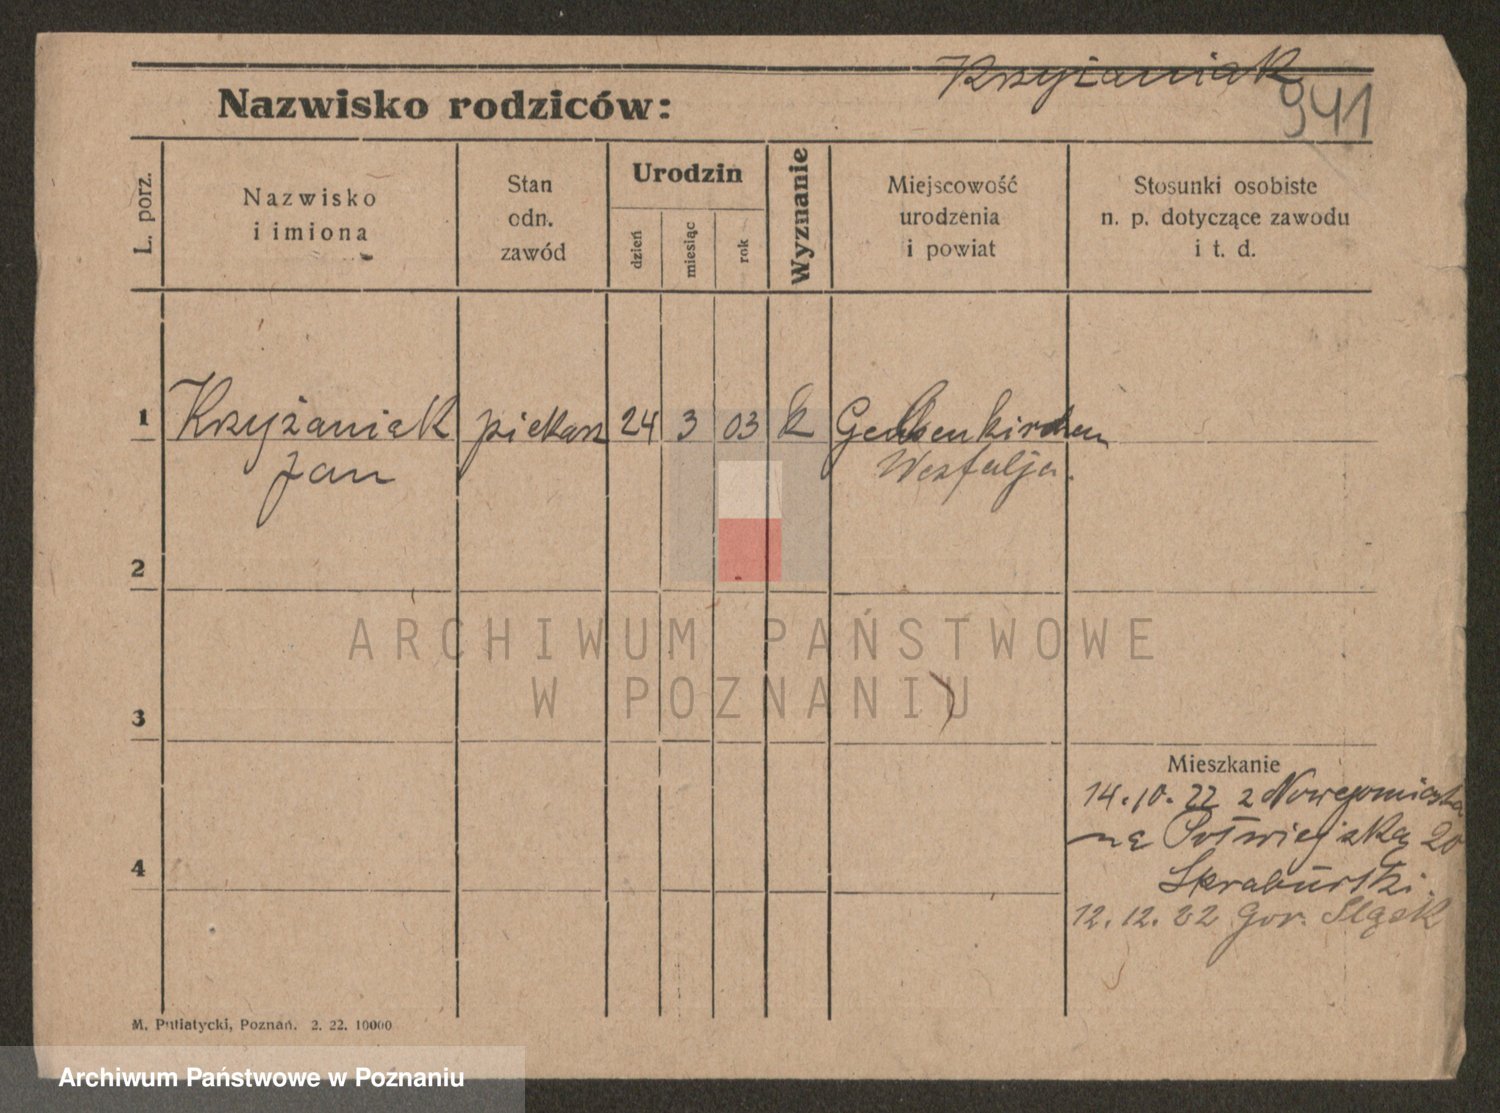 Krzyżaniak
941
Nazwisko rodziców:
L. porz.
Nazwisko
i imiona
Stan
odn.
zawód
Urodzin
dzień
miesiąc
rok
Wyznanie
Miejscowość
urodzenia
i powiat
Stosunki osobiste
n. p. dotyczące zawodu
i t. d.
1
Krzyżaniak piekarz 24 3 03 k
Jan
Westfalja.
2
ARCHIWUM PAŃSTWOWE
W POZNANIU
3
Mieszkanie
14.10.22 z Nowegomiasta
na Półwiejską 20
4
12.12.22 Gór. Śląsk
M. Putiatycki, Poznań. 2. 22. 10000
Archiwum Państwowe w Poznaniu